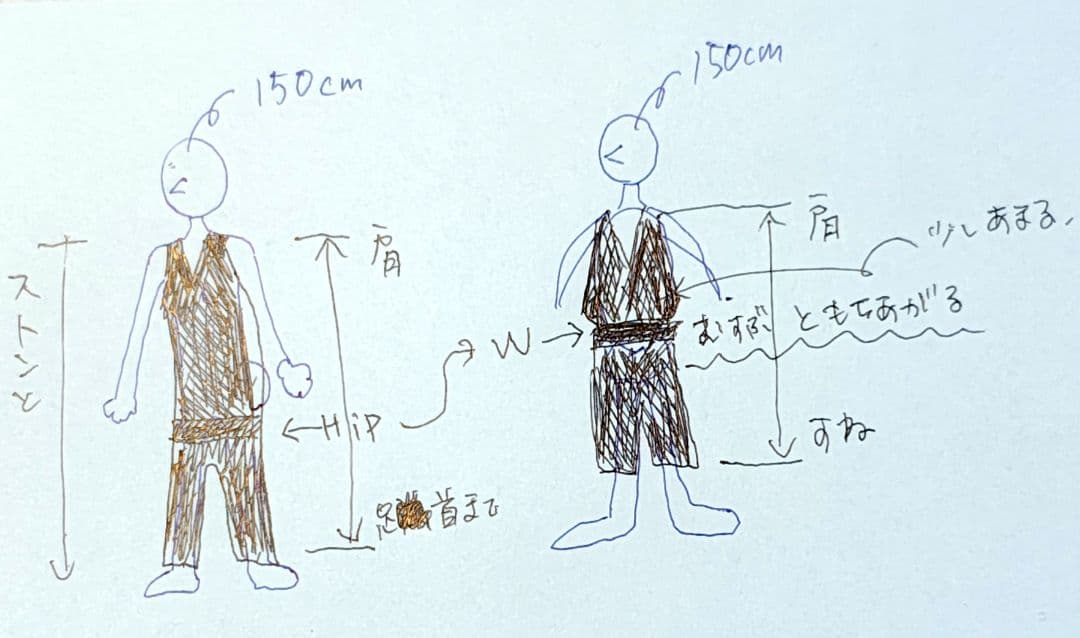 150cm
ストンと
肩
←HiP
足首まで
150cm
肩
少しあまる。
W→
むすぶ ともちあがる
すね